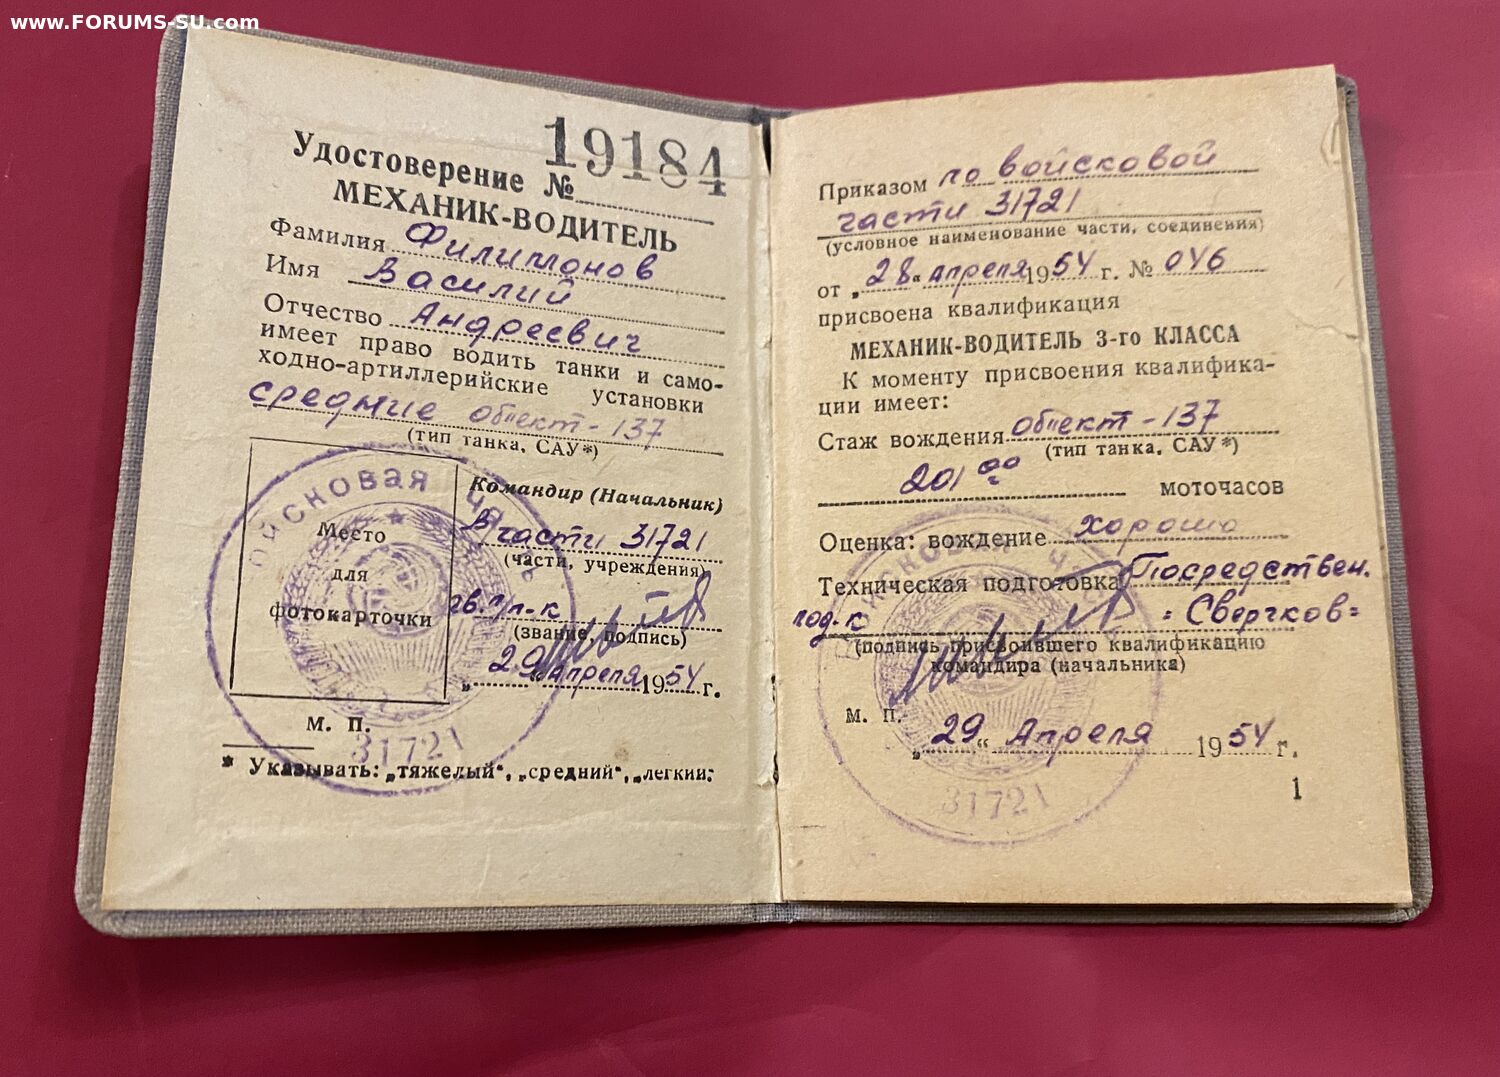 www.FORUMS-SU.com
19184
Удостоверение №
МЕХАНИК-ВОДИТЕЛЬ
Фамилия Филимонов
Имя Василий
Отчество Андреевич
имеет право водить танки и само-
ходно-артиллерийские установки
средние объект-137
(тип танка, САУ*)
Командир (Начальник)
В/части 31721
(части, учреждения)
гв. п/п-к
(звание, подпись)
„29“ Апреля 1954 г.
Место
для
фотокарточки
М. П.
войсковая часть
31721
* Указывать: „тяжелый“, „средний“, „легкий“
Приказом по войсковой
части 31721
(условное наименование части, соединения)
от „28“ апреля 1954 г. № 046
присвоена квалификация
МЕХАНИК-ВОДИТЕЛЬ 3-го КЛАССА
К моменту присвоения квалифика-
ции имеет:
Стаж вождения объект-137
(тип танка, САУ*)
201 00 моточасов
Оценка: вождение хорошо
Техническая подготовка Посредствен.
под-к =Сверчков=
(подпись присвоившего квалификацию
командира (начальника)
М. П.
„29“ Апреля 1954 г.
войсковая часть
31721
1